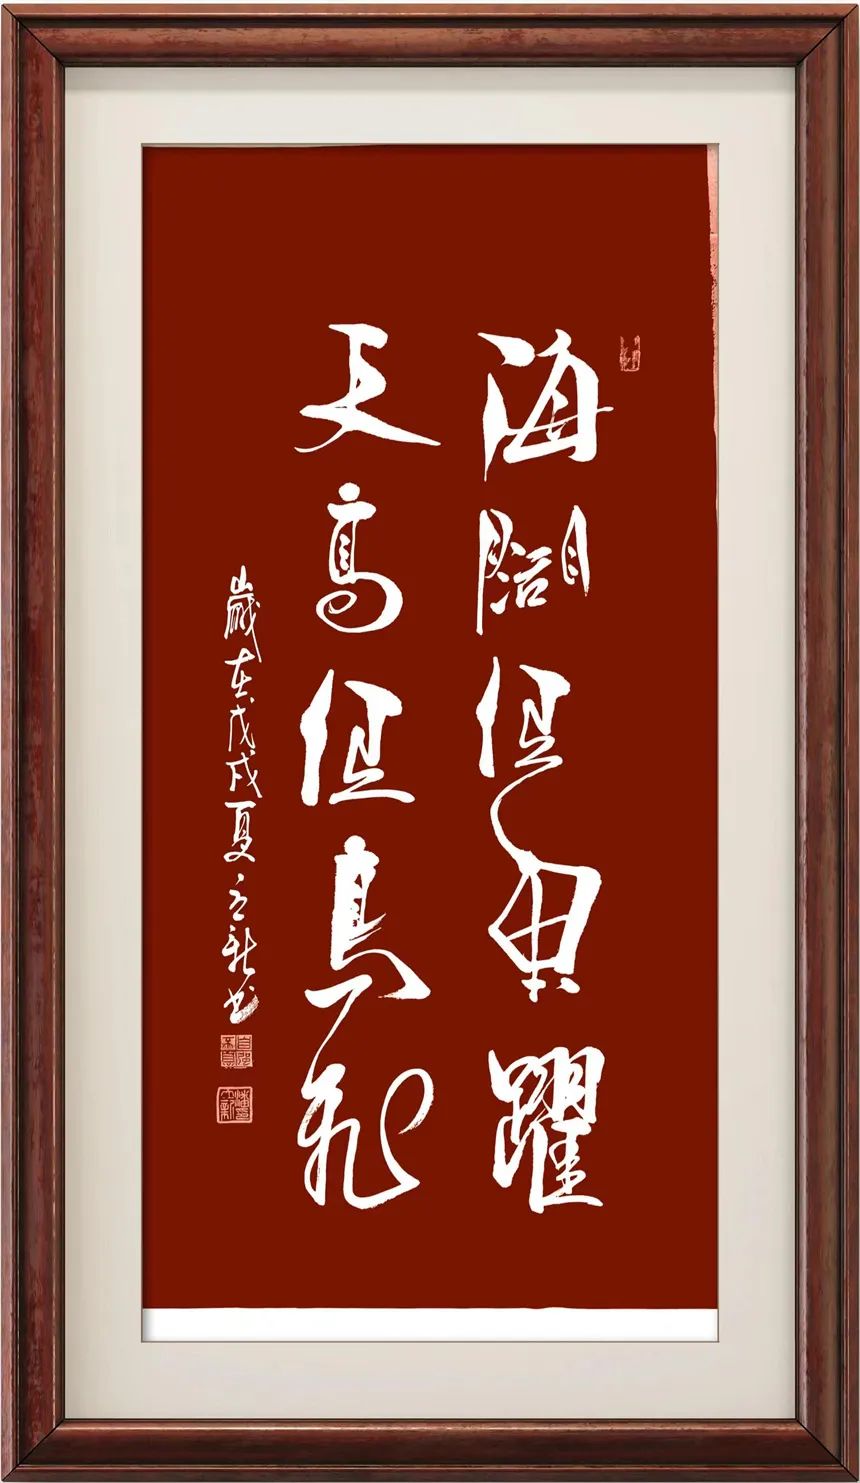 海闊任魚躍
天高任鳥飛
歲在戊戌夏立新書